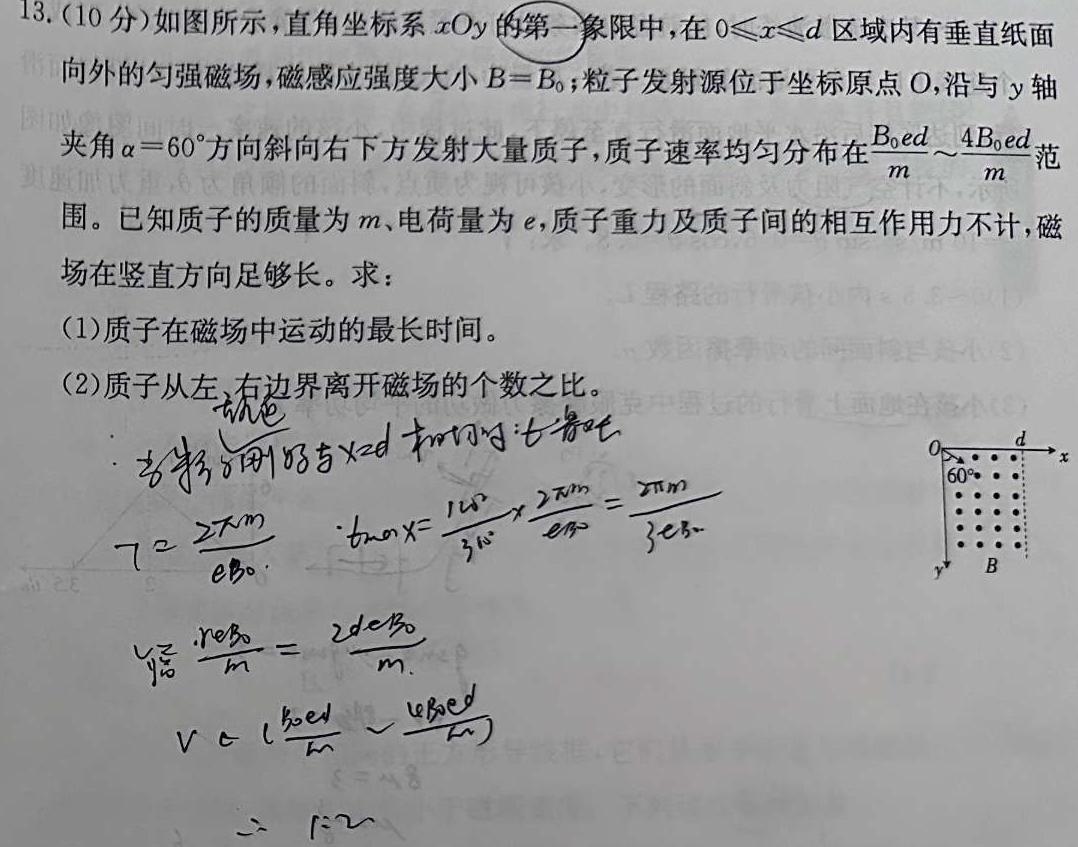 13.(10分)如图所示,直角坐标系 xOy 的第一象限中,在 0≤x≤d 区域内有垂直纸面
向外的匀强磁场,磁感应强度大小 B=B₀;粒子发射源位于坐标原点 O,沿与 y 轴
夹角 α=60°方向斜向右下方发射大量质子,质子速率均匀分布在 B₀ed/m ~ 4B₀ed/m 范
围。已知质子的质量为 m、电荷量为 e,质子重力及质子间的相互作用力不计,磁
场在竖直方向足够长。求:
(1)质子在磁场中运动的最长时间。
(2)质子从左、右边界离开磁场的个数之比。
刚好与x=d 相切时:t最长
T= 2πm/eB₀. tmax= 120°/360° × 2πm/eB₀ = 2πm/3eB₀
= reB₀/m = 2deB₀/m.
V ∈ (B₀ed/m ~ 4B₀ed/m)
∴ 1:2
O d x
60°
y B